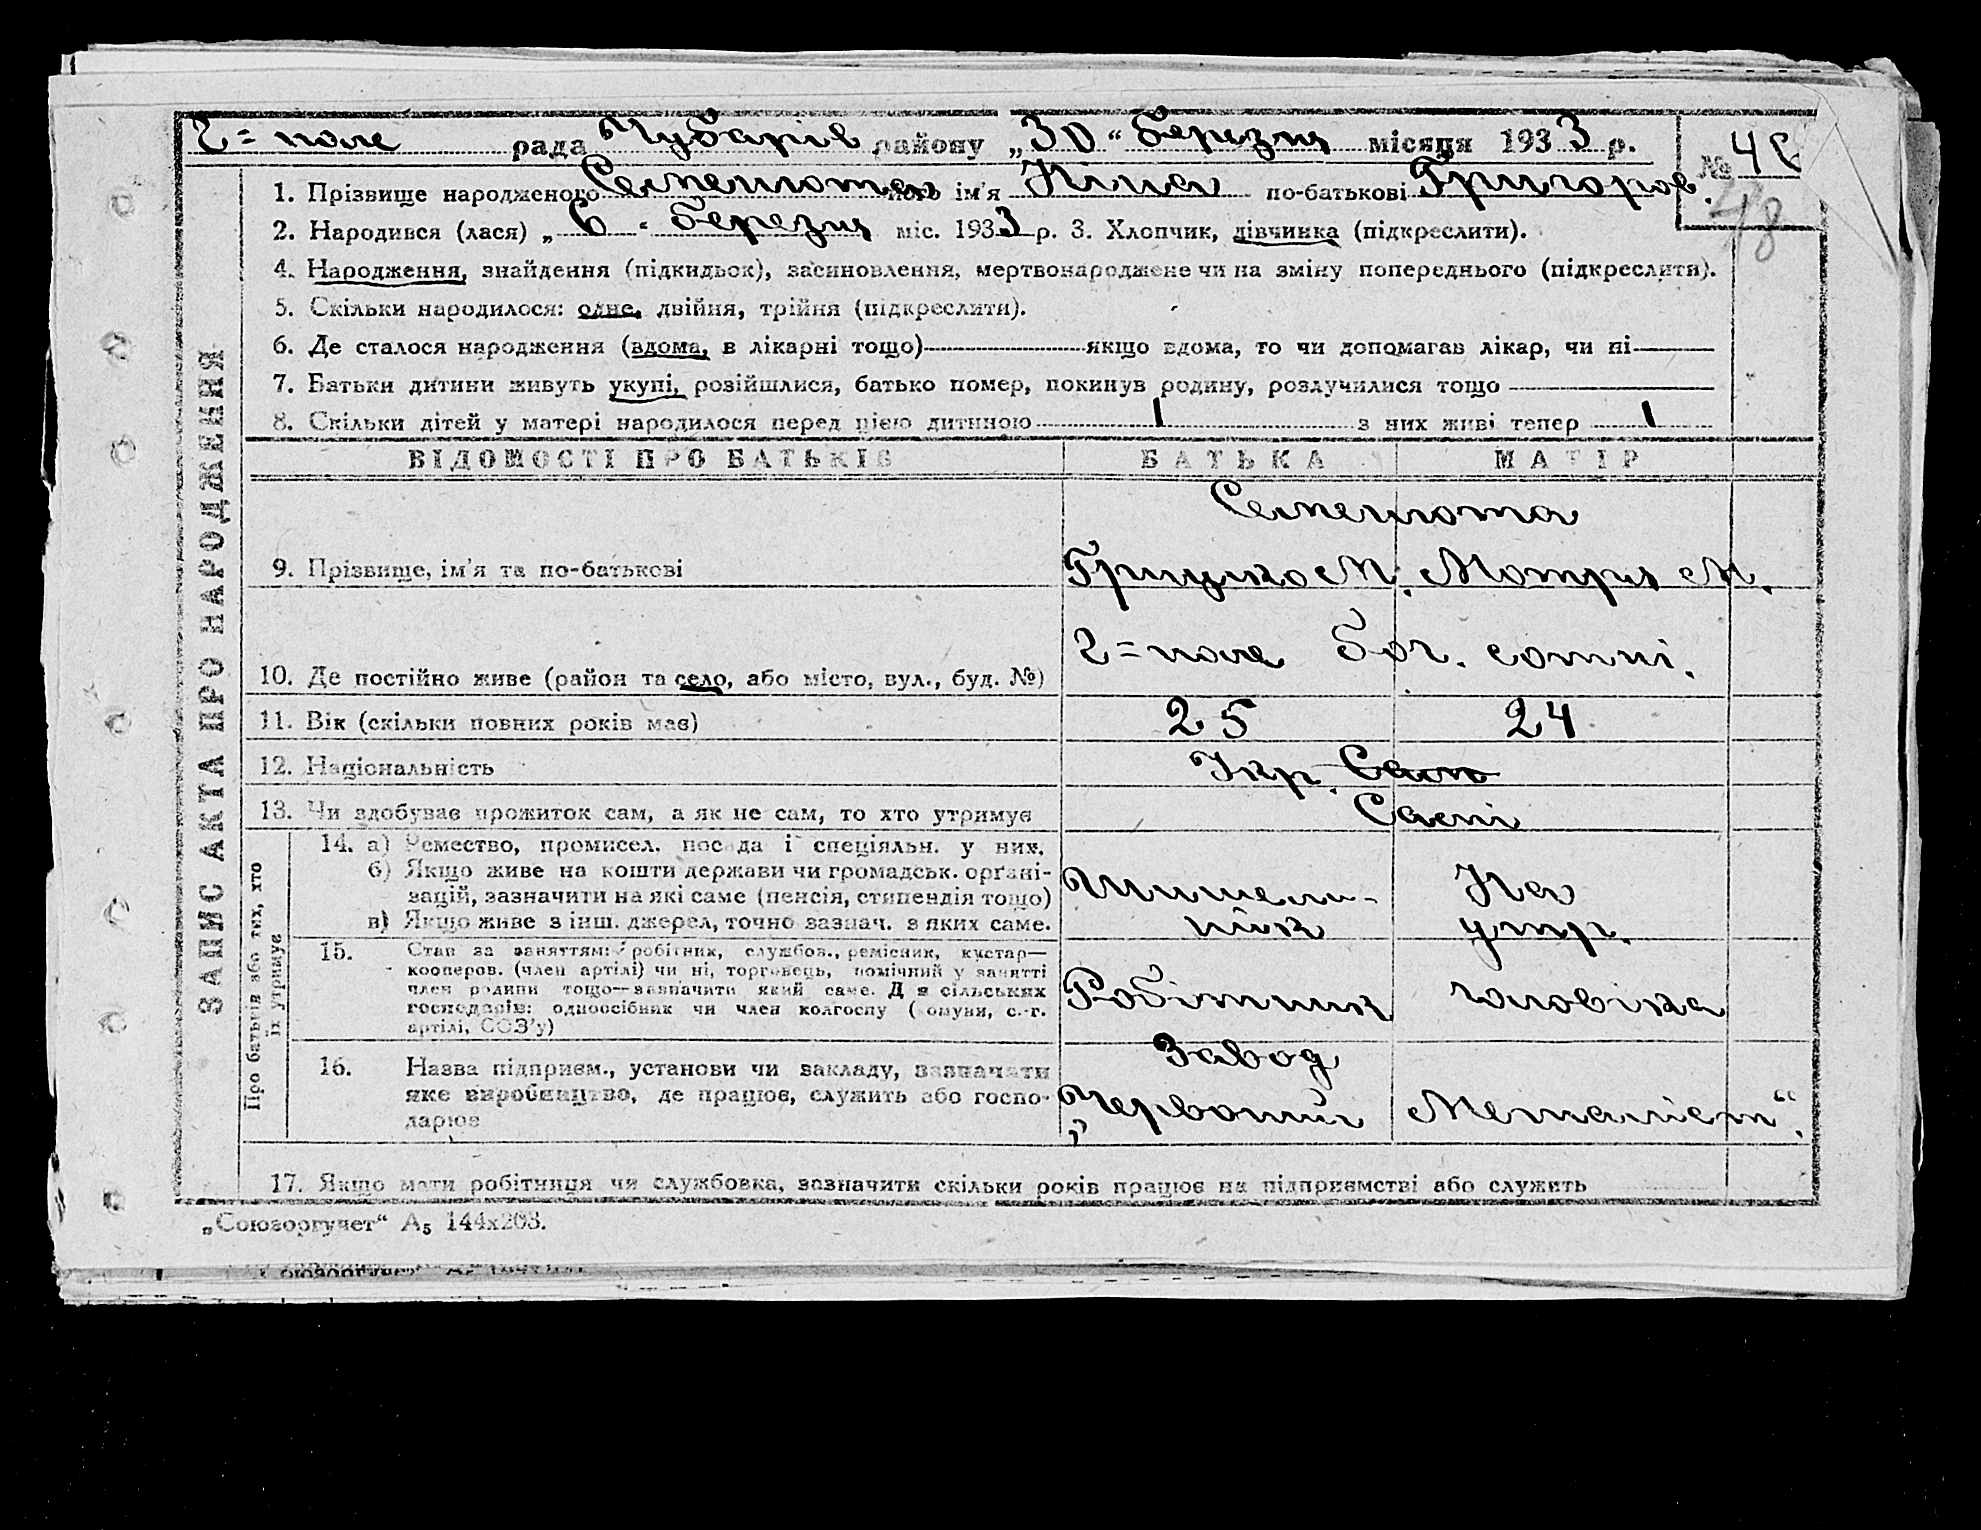 Г=поле рада Чубарів району „30“ березня місяця 1933 р.
№ 48
48
1. Прізвище народженого Семенюта його ім'я Ніна по-батькові Григоров.
2. Народився (лася) „6“ березня міс. 1933 р. 3. Хлопчик, дівчинка (підкреслити).
4. Народження, знайдення (підкидьок), засиновлення, мертвонароджене чи на зміну попереднього (підкреслити).
5. Скільки народилося: одне, двійня, трійня (підкреслити).
6. Де сталося народження (вдома, в лікарні тощо) якщо вдома, то чи допомагав лікар, чи ні
7. Батьки дитини живуть укупі, розійшлися, батько помер, покинув родину, розлучилися тощо
8. Скільки дітей у матері народилося перед цією дитиною 1 з них живі тепер 1
ЗАПИС АКТА ПРО НАРОДЖЕННЯ
ВІДОМОСТІ ПРО БАТЬКІВ БАТЬКА МАТІР
Семенюта
9. Прізвище, ім'я та по-батькові Грицько М. Мотря М.
10. Де постійно живе (район та село, або місто, вул., буд. №) Г=поле сотні.
11. Вік (скільки повних років має) 25 24
12. Національність Укр.
13. Чи здобуває прожиток сам, а як не сам, то хто утримує Самі
Про батьків або тих, хто їх утримує
14. а) Ремество, промисел. посада і спеціяльн. у них.
б) Якщо живе на кошти держави чи громадськ. орґані-
зацій, зазначити на які саме (пенсія, стипендія тощо)
в) Якщо живе з інш. джерел, точно зазнач. з яких саме.
На
утр.
15. Стан за заняттям: робітник, службов., ремісник, кустар—
кооперов. (член артілі) чи ні, торговець, помічний у занятті
член родини тощо—зазначити який саме. Для сільських
господарів: одноосібник чи член колгоспу (комуни, с.-г.
артілі, СОЗ'у)
Робітник чоловіка
16. Назва підприєм., установи чи закладу, зазначати
яке виробництво, де працює, служить або госпо-
дарює
Завод
„Червоний Металіст“.
17. Якщо мати робітниця чи службовка, зазначити скільки років працює на підприємстві або служить
„Союзоргучет“ А5 144х203.